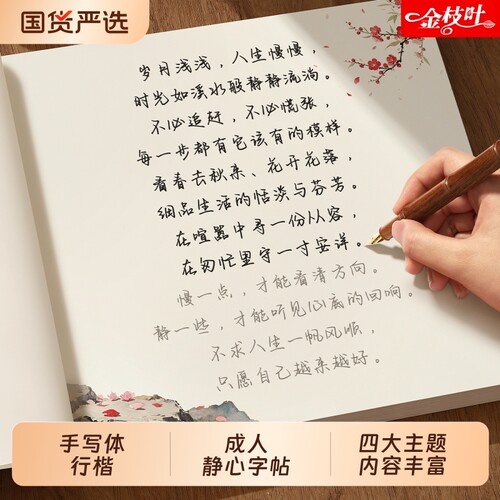 国货严选
金枝叶
岁月浅浅，人生慢慢，
时光如溪水般静静流淌。
不必追赶，不必慌张，
每一步都有它该有的模样。
看春去秋来、花开花落，
细品生活的恬淡与芬芳。
在喧嚣中寻一份从容，
在匆忙里守一寸安详。
慢一点，才能看清方向。
静一些，才能听见心底的回响。
不求人生一帆风顺，
只愿自己越来越好。
手写体
行楷
成人
静心字帖
四大主题
内容丰富